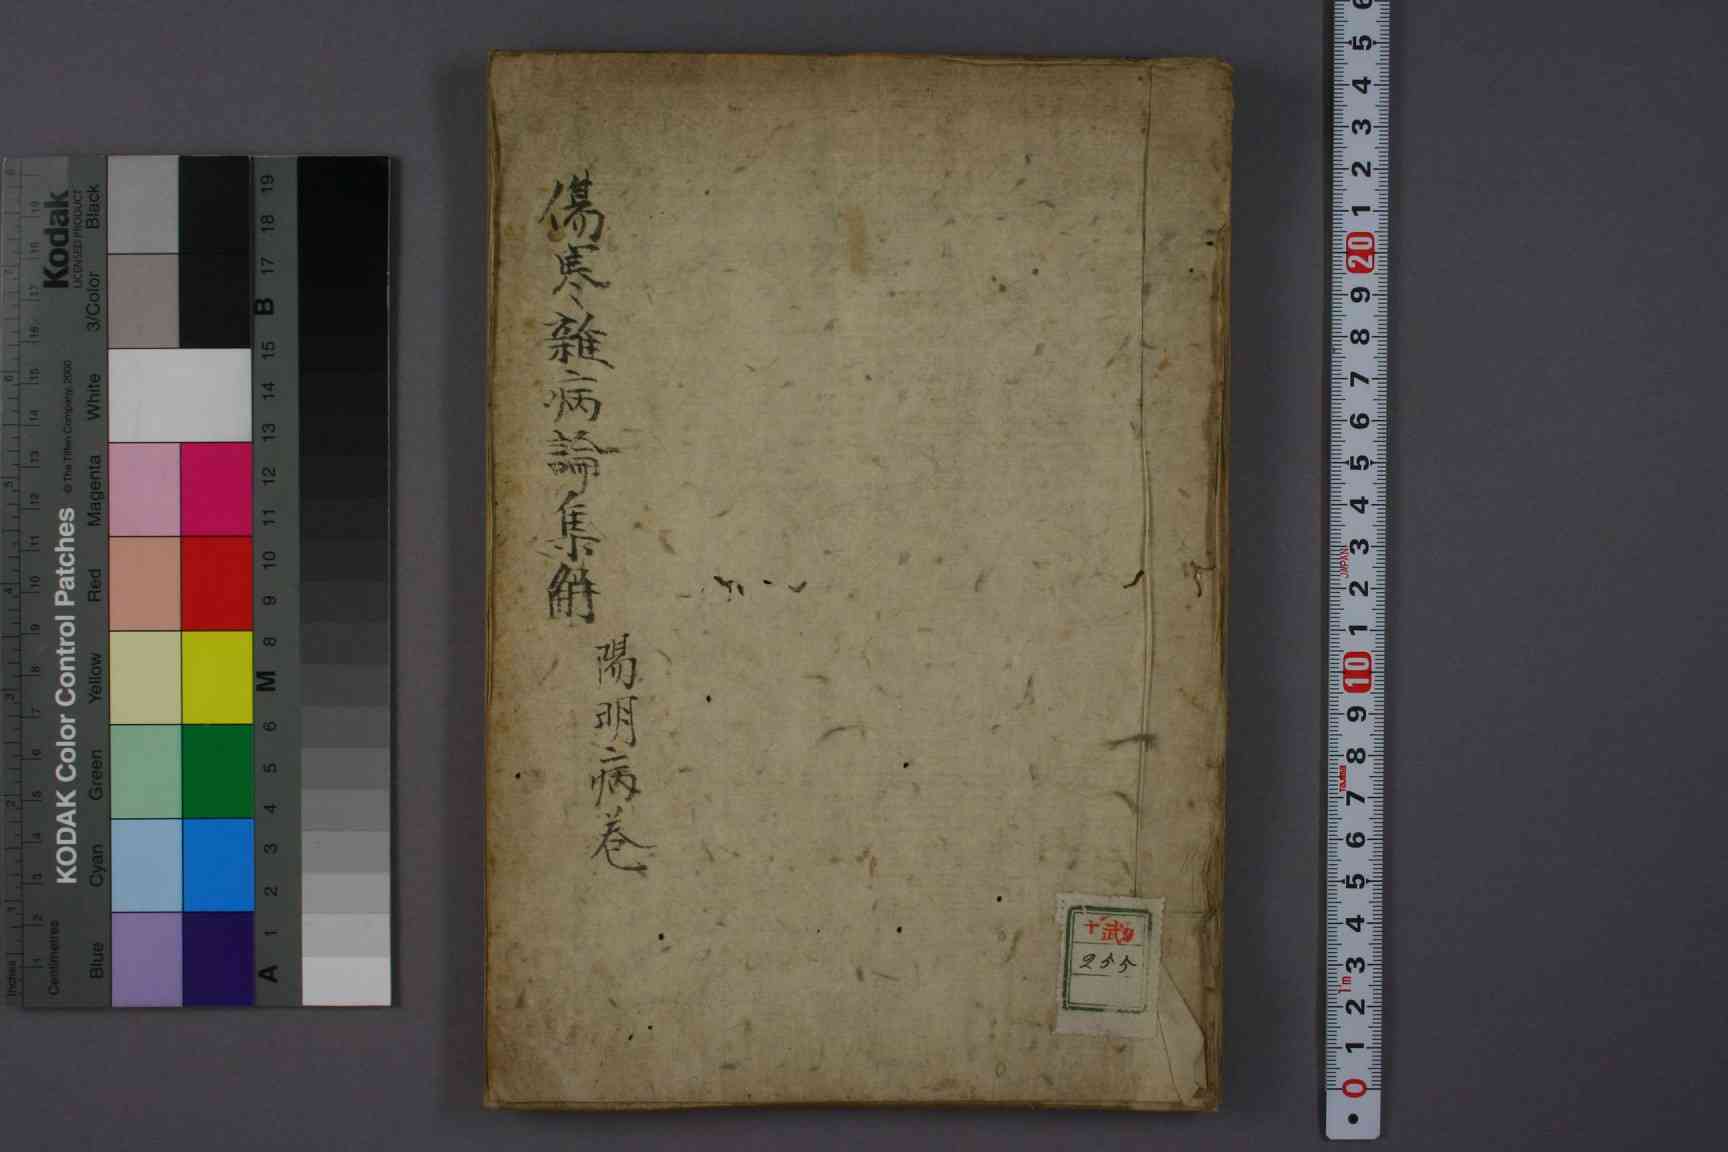 傷寒雜病論集解
陽明病卷
十武
255
Kodak
LICENSED PRODUCT
KODAK Color Control Patches
© The Tiffen Company, 2000
Inches
Centimetres
Blue
Cyan
Green
Yellow
Red
Magenta
White
3/Color
Black
A 1 2 3 4 5 6 M 8 9 10 11 12 13 14 15 B 17 18 19
JAPAN
1m
0 1 2 3 4 5 6 7 8 9 10 1 2 3 4 5 6 7 8 9 20 1 2 3 4 5 6